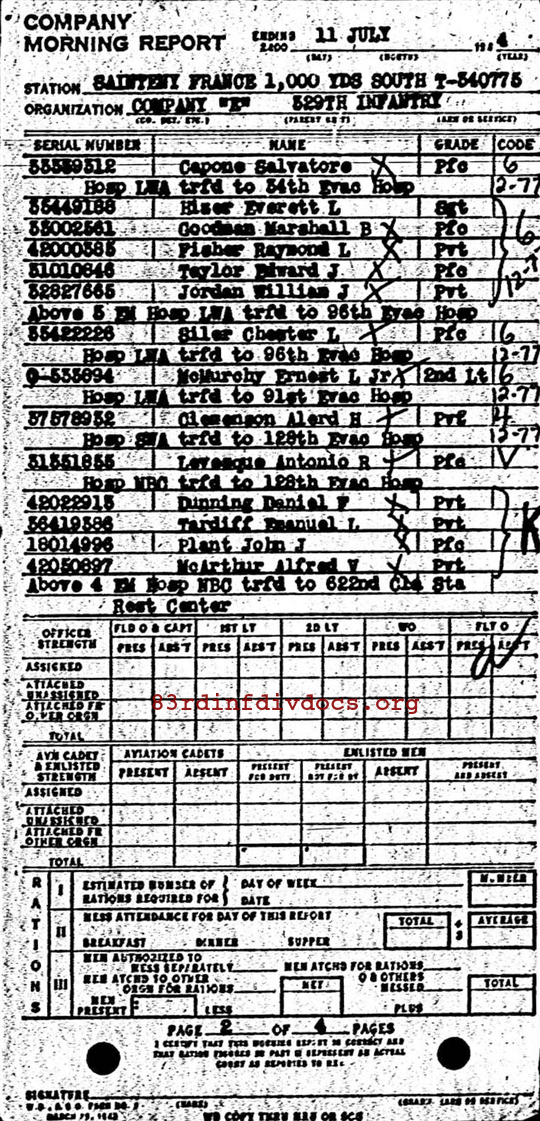 COMPANY
MORNING REPORT ENDING 2400 11 JULY 194 4
(DAY) (MONTH) (YEAR)
STATION SAINTENY FRANCE 1,000 YDS SOUTH T-340775
ORGANIZATION COMPANY "E" 329TH INFANTRY
(CO. DET. ETC.) (PARENT UNIT) (ARM OR SERVICE)
SERIAL NUMBER NAME GRADE CODE
Capone Salvatore X Pfc 6
Hosp LWA trfd to 34th Evac Hosp 12-77
35449188 Hizer Everett L Sgt
33002561 Goodman Marshall B X Pfc 6
42000385 Fisher Raymond L X Pvt
31010846 Taylor Edward J X Pfc
32827665 Jordan William J X Pvt
Above 5 EM Hosp LWA trfd to 96th Evac Hosp
35422226 Siler Chester L X Pfc 6
Hosp LWA trfd to 96th Evac Hosp 12-77
McMurchy Ernest L Jr X 2nd Lt 6
Hosp LWA trfd to 91st Evac Hosp 12-77
37578932 Clemenson Alerd H X Pvt 4
Hosp SWA trfd to 128th Evac Hosp 12-77
31351855 Levesque Antonio R Pfc
Hosp NBC trfd to 128th Evac Hosp
42022913 Dunning Daniel F X Pvt
36419386 Tardiff Emanuel L X Pvt K
18014996 Plant John J X Pfc
42050897 McArthur Alfred V X Pvt
Above 4 EM Hosp NBC trfd to 622nd Clg Sta
Rest Center
OFFICER STRENGTH FLD O & CAPT 1ST LT 2D LT WO FLT O
PRES ABS'T PRES ABS'T PRES ABS'T PRES ABS'T PRES ABS'T
ASSIGNED
ATTACHED UNASSIGNED
ATTACHED FR OTHER ORGN
TOTAL
83rdinfdivdocs.org
AVN CADET & ENLISTED STRENGTH AVIATION CADETS ENLISTED MEN
PRESENT ABSENT PRESENT FOR DUTY PRESENT NOT FOR DY ABSENT PRESENT AND ABSENT
ASSIGNED
ATTACHED UNASSIGNED
ATTACHED FR OTHER ORGN
TOTAL
RATIONS
I ESTIMATED NUMBER OF RATIONS REQUIRED FOR } DAY OF WEEK DATE NUMBER
II MESS ATTENDANCE FOR DAY OF THIS REPORT TOTAL ÷ 3 AVERAGE
BREAKFAST DINNER SUPPER
III MEN AUTHORIZED TO MESS SEPARATELY MEN ATCHD FOR RATIONS
MEN ATCHD TO OTHER ORGN FOR RATIONS NET O & OTHERS MESSED TOTAL
MEN PRESENT LESS PLUS
PAGE 2 OF 4 PAGES
I CERTIFY THAT THIS MORNING REPORT IS CORRECT AND
THAT RATION FIGURES IN PART III REPRESENT AN ACTUAL
COUNT AS REPORTED TO ME.
SIGNATURE
W.D., A.G.O. FORM NO. 1 (NAME) (GRADE) (ARM OR SERVICE)
MARCH 29, 1943